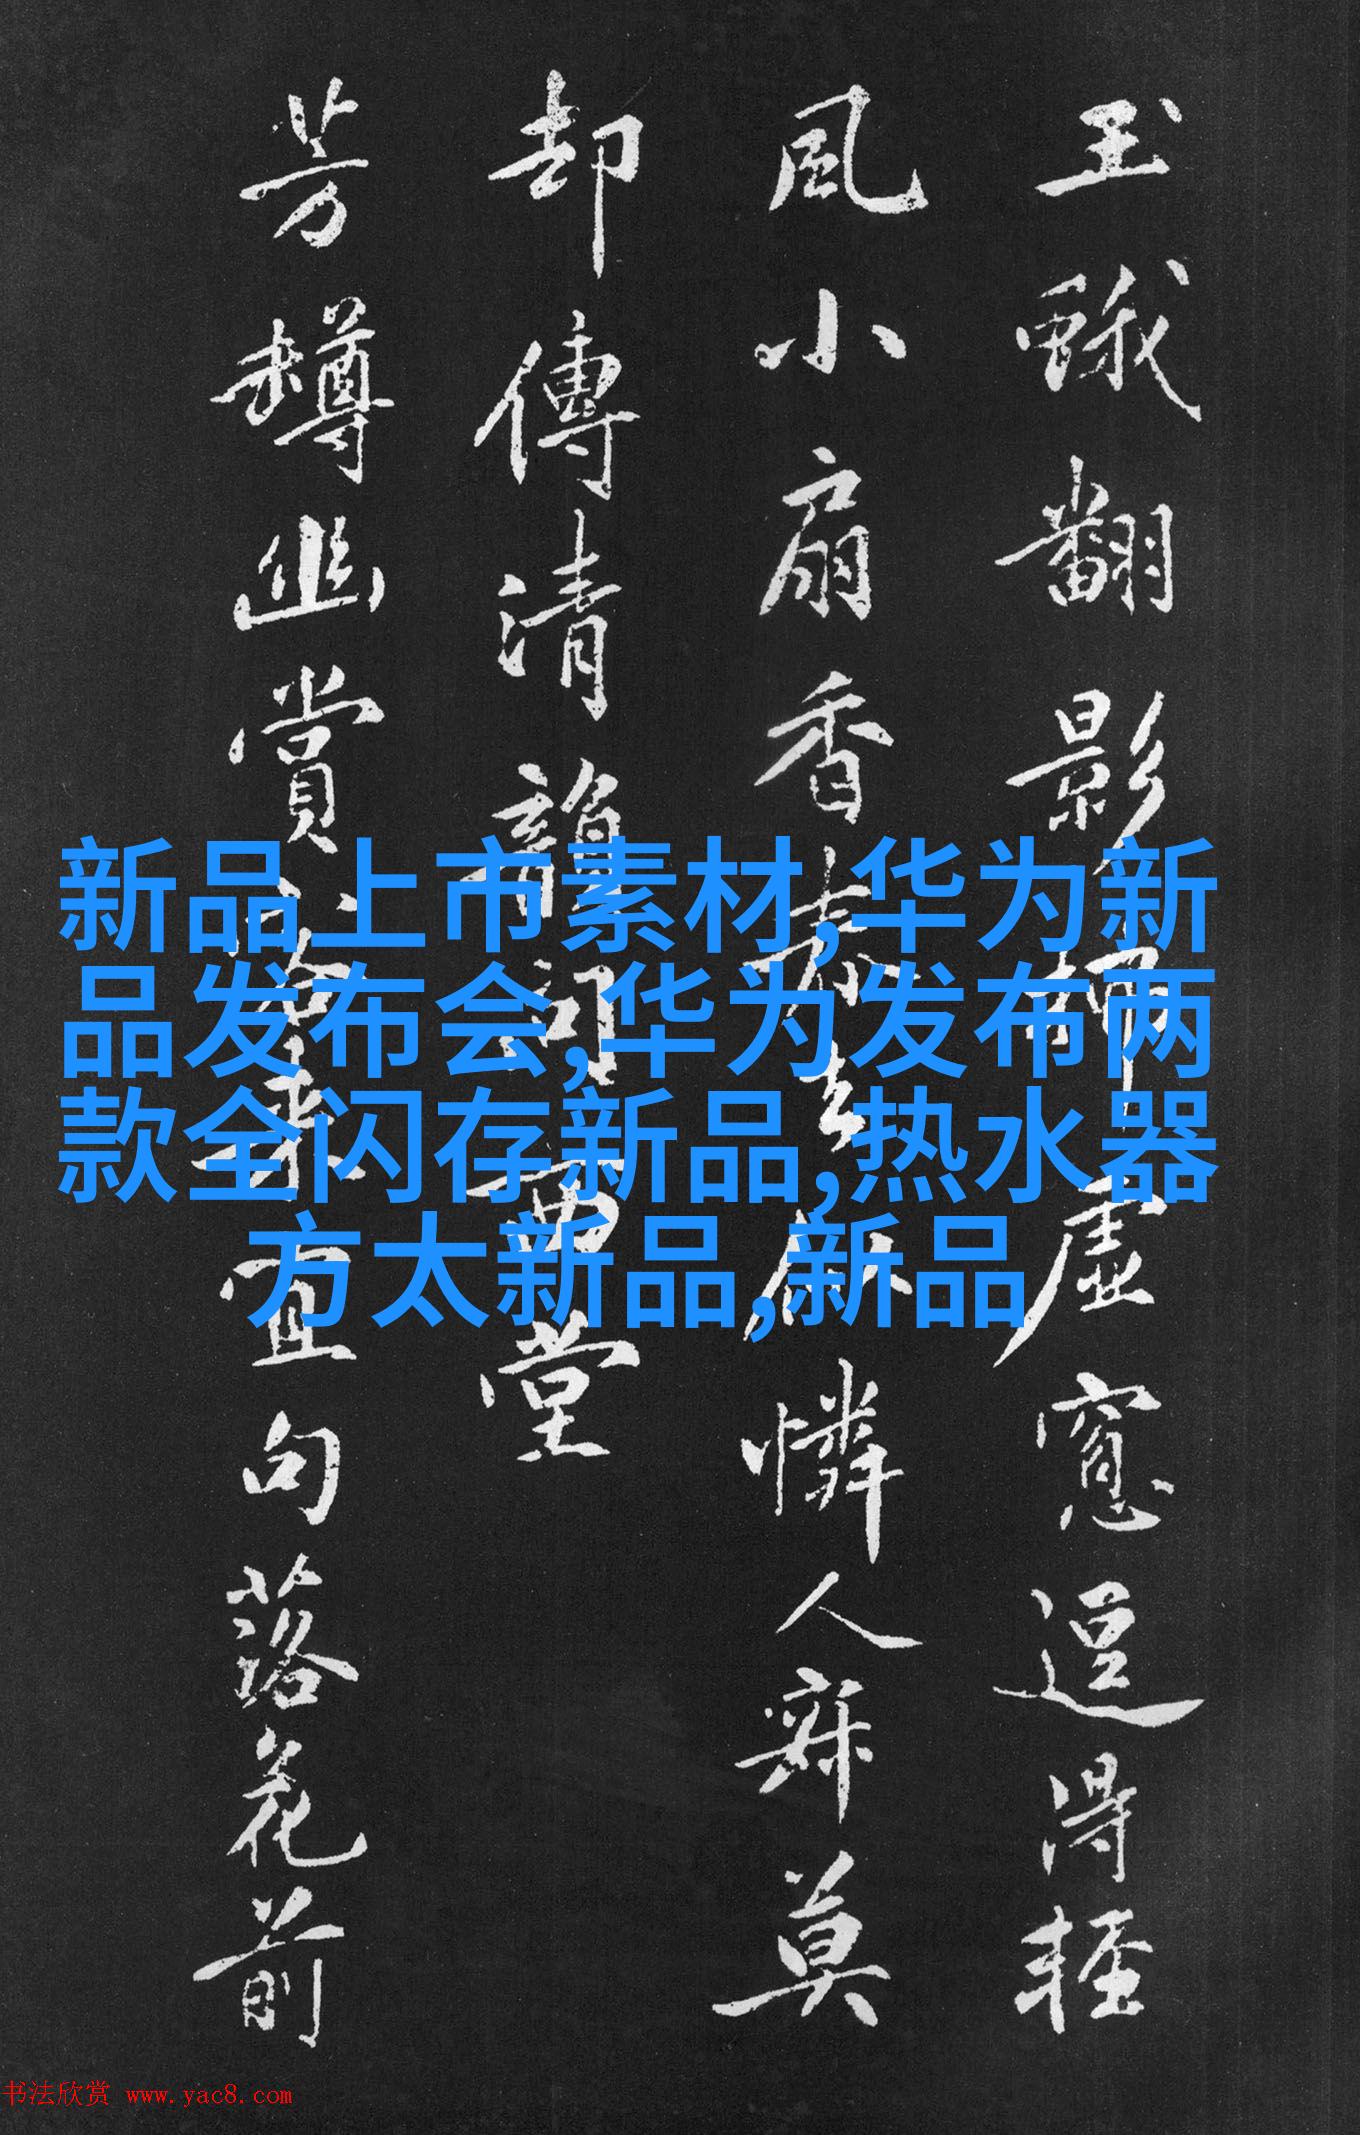 玉蛾翻影 虛窓逗得輕
風小扇香 憐人寐莫
却傳清 堂
芳樽幽賞 宜句落花前
新品上市素材,华为新
品发布会,华为发布两
款全闪存新品,热水器
方太新品,新品
书法欣赏 www.yac8.com